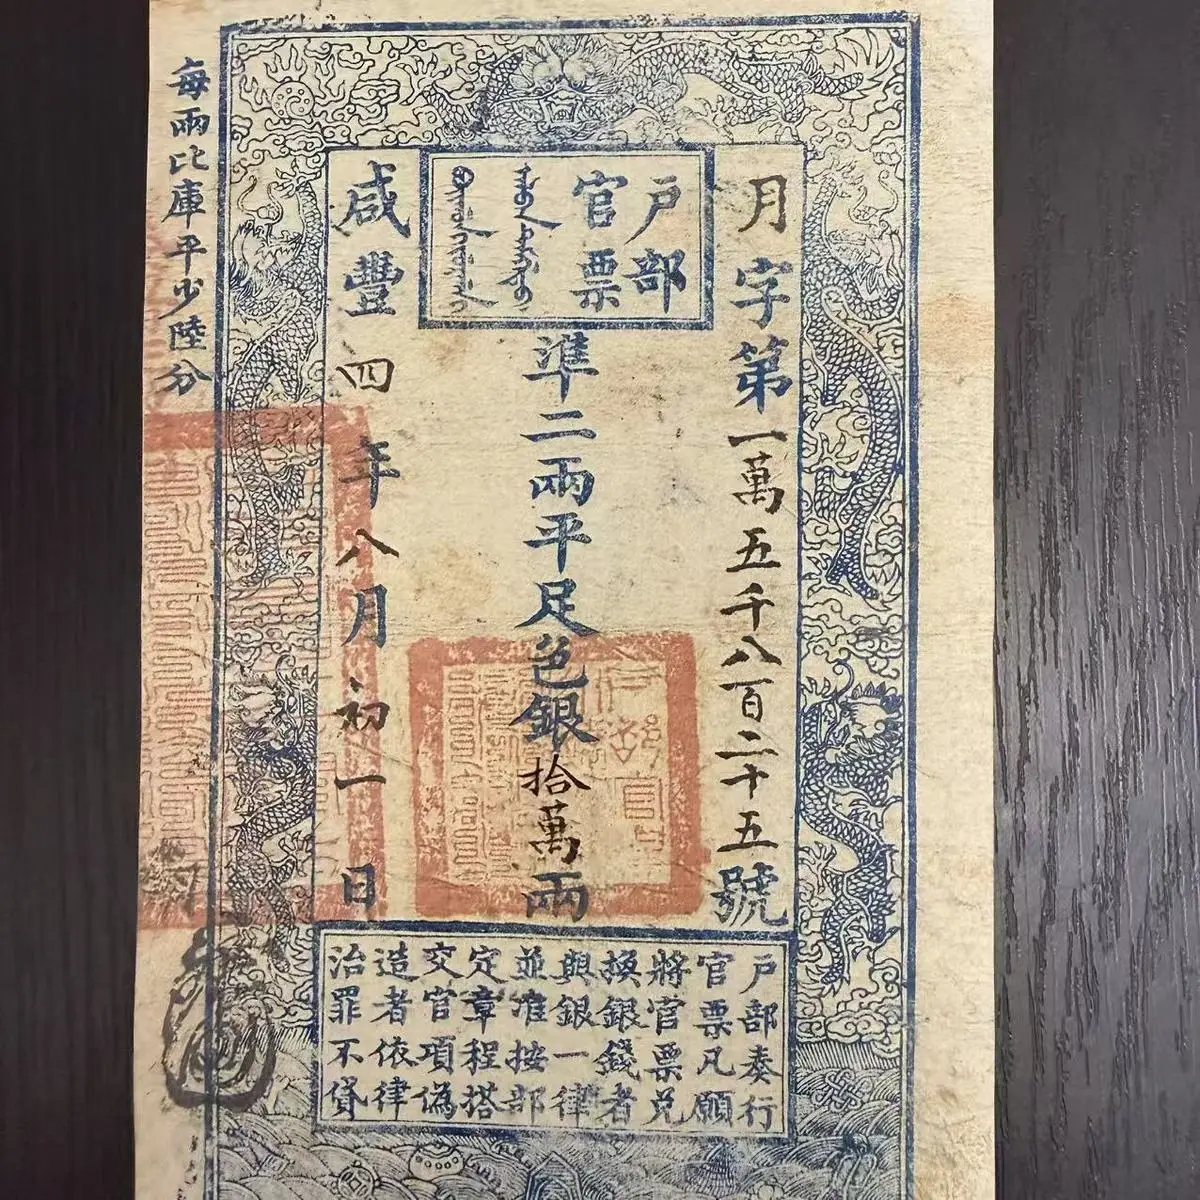 月字第一萬五千八百二十五號
戶部
官票
準二兩平足色銀拾萬兩
咸豐四年八月初一日
每兩比庫平少陸分
戶部奏行
官票凡願
將官票兌
換銀錢者
與銀一律
並准按部
定章程搭
交官項偽
造者依律
治罪不貸